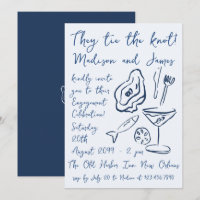 They tie the knot!
Madison and James
kindly invite
you to their
Engagement
Celebration!
Saturday
20th
August 2099 - 2 pm
The Old Harbor Inn New Orleans
rsvp by July 20 to Nation at 123.456.7890